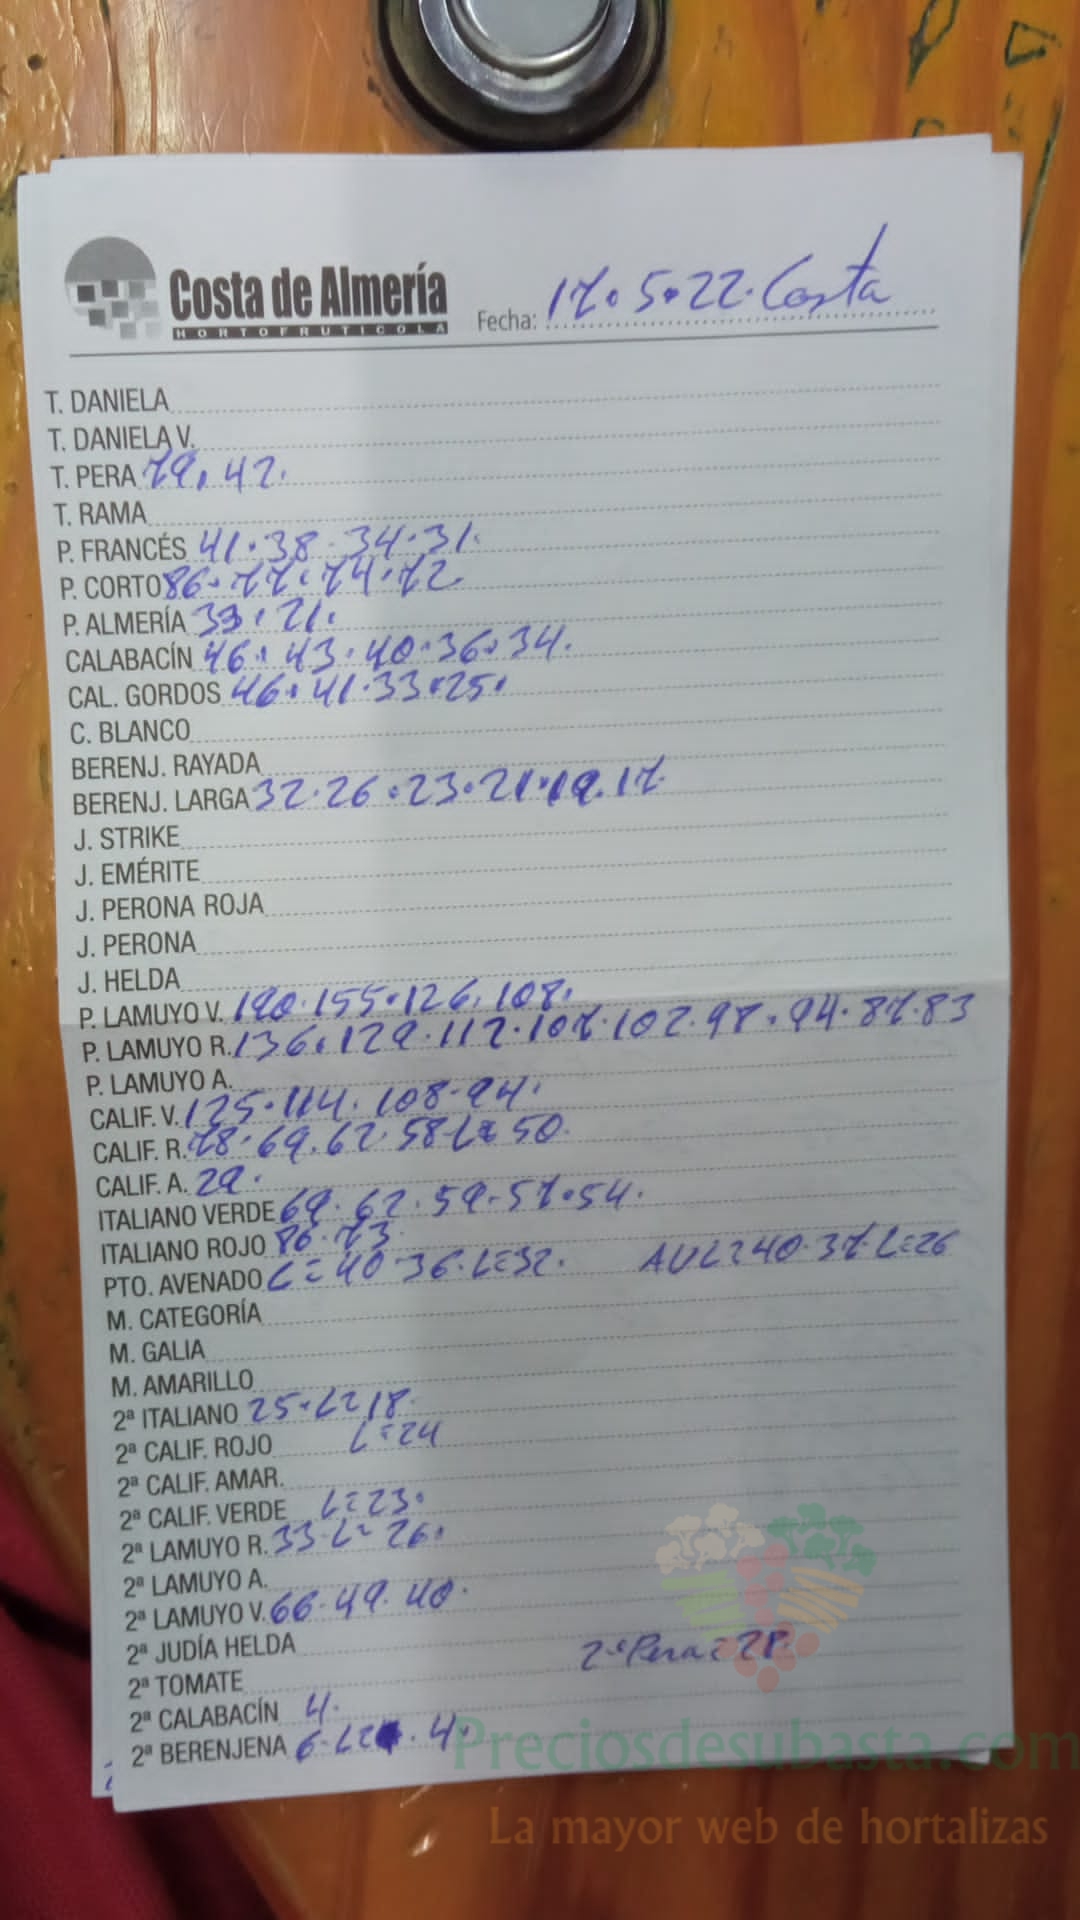 Costa de Almería
HORTOFRUTICOLA
Fecha: 17.5.22. Costa
T. DANIELA
T. DANIELA V.
T. PERA 79. 42.
T. RAMA
P. FRANCÉS 41.38.34.31.
P. CORTO 86.77.74.72
P. ALMERÍA 33.21.
CALABACÍN 46.43.40.36.34.
CAL. GORDOS 46.41.33.25.
C. BLANCO
BERENJ. RAYADA
BERENJ. LARGA 32.26.23.21.19.17
J. STRIKE
J. EMÉRITE
J. PERONA ROJA
J. PERONA
J. HELDA
P. LAMUYO V. 190.155.126.108.
P. LAMUYO R. 136.129.112.107.102.98.94.87.83
P. LAMUYO A.
CALIF. V. 125.114.108.94.
CALIF. R. 78.69.62.58-L=50.
CALIF. A. 29.
ITALIANO VERDE 69.62.59.57.54.
ITALIANO ROJO 86.73.
PTO. AVENADO L=40-36.L=32. AVL=40.37.L=26
M. CATEGORÍA
M. GALIA
M. AMARILLO
2ª ITALIANO 25.L=18.
2ª CALIF. ROJO L=24
2ª CALIF. AMAR.
2ª CALIF. VERDE L=23.
2ª LAMUYO R. 33-L=26.
2ª LAMUYO A.
2ª LAMUYO V. 66.49.40.
2ª JUDÍA HELDA
2ª Pera=28.
2ª TOMATE
2ª CALABACÍN 4.
2ª BERENJENA 6-L= . 4.
Preciosdesubasta.com
La mayor web de hortalizas